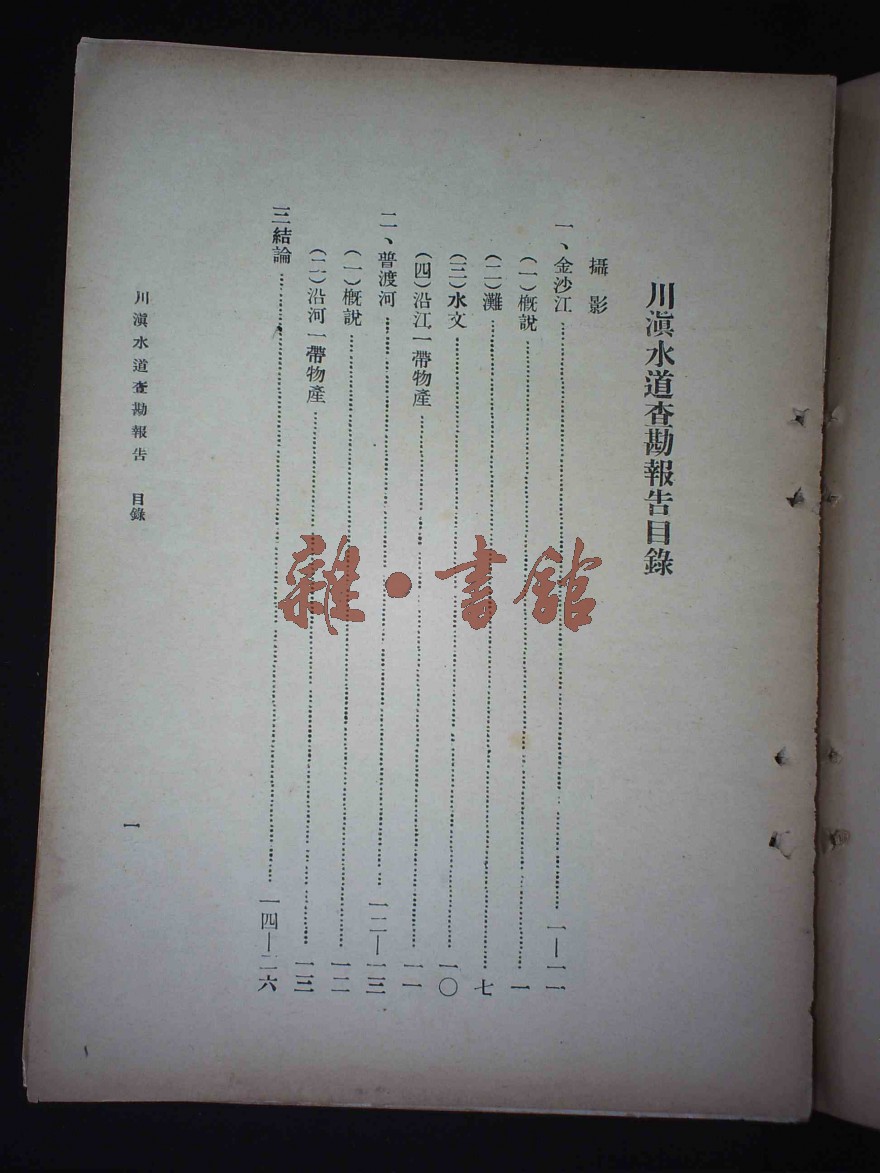 川滇水道查勘報告目錄
攝影
一、金沙江……一—一一
(一)概說……一
(二)灘……七
(三)水文……一〇
(四)沿江一帶物產……一一
二、普渡河……一二—一三
(一)概說……一二
(二)沿河一帶物產……一三
三結論……一四—二六
川滇水道查勘報告 目錄
一
雜·書館